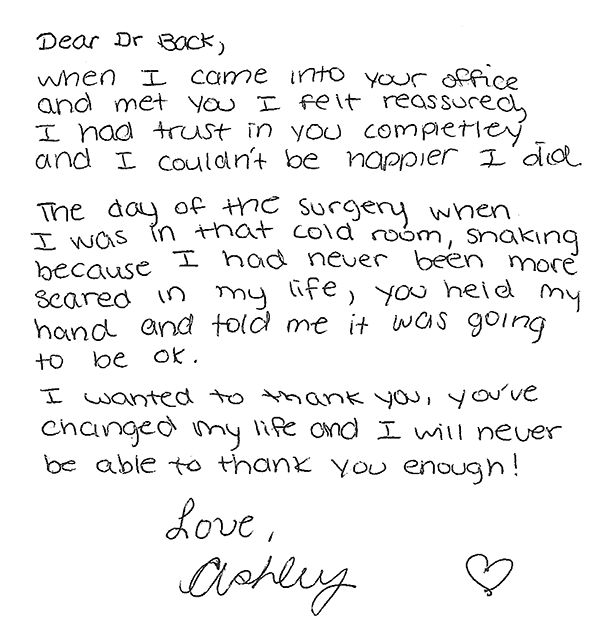 Dear Dr Back,
when I came into your office
and met you I felt reassured,
I had trust in you completley
and I couldn't be happier I did.
The day of the surgery when
I was in that cold room, shaking
because I had never been more
scared in my life, you held my
hand and told me it was going
to be ok.
I wanted to thank you, you've
changed my life and I will never
be able to thank you enough!
Love,
Ashley